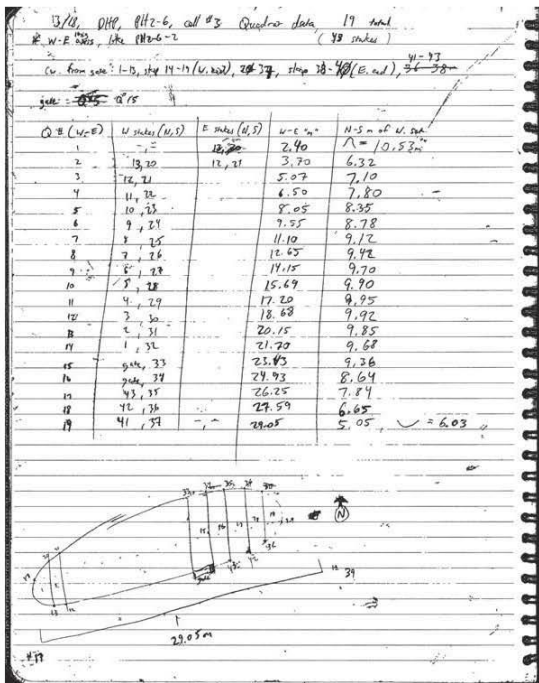 3/18, DHP, PH2-6, call #3 Quadrat data, 19 total
* W-E long axis, like PH2-6-2 (43 stakes)
(w. from gate: 1-13, step 14-19 (W. end), 20-37, step 38-40 (E. end), 41-43
gate = Q15
Q # (W-E) W stakes (N,S) E stakes (N,S) W-E "m" N-S m of W. side
1 -,- 12,20 2.40 = 10.53m
2 13,20 12,21 3.70 6.32
3 12,21 5.07 7.10
4 11,22 6.50 7.80
5 10,23 8.05 8.35
6 9,24 9.55 8.78
7 8,25 11.10 9.12
8 7,26 12.65 9.42
9 6,27 14.15 9.70
10 5,28 15.69 9.90
11 4,29 17.20 9.95
12 3,30 18.68 9.92
13 2,31 20.15 9.85
14 1,32 21.70 9.68
15 gate, 33 23.43 9.36
16 gate, 34 24.93 8.64
17 43,35 26.25 7.84
18 42,36 27.59 6.65
19 41,37 -,- 29.05 5.05, = 6.03
N
gate
39
29.05m